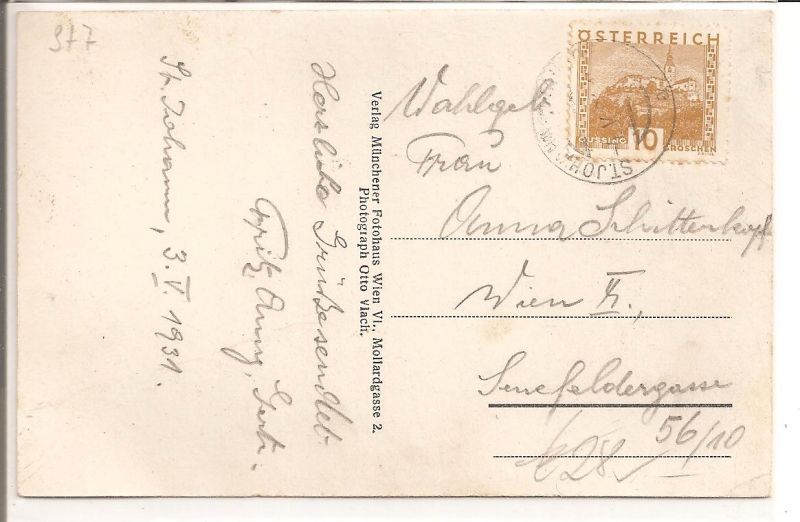 377
St. Johann, 3. V. 1931.
Herzliche Grüße sendet
Fritz, Anny, Gerti.
Verlag Münchener Fotohaus Wien VI., Mollardgasse 2.
Photograph Otto Vlach.
ÖSTERREICH
GÜSSING 10 GROSCHEN
ST. JOHANN
Wohlgeb.
Frau
Anna Schitterkopf
Wien
Senefeldergasse
56/10